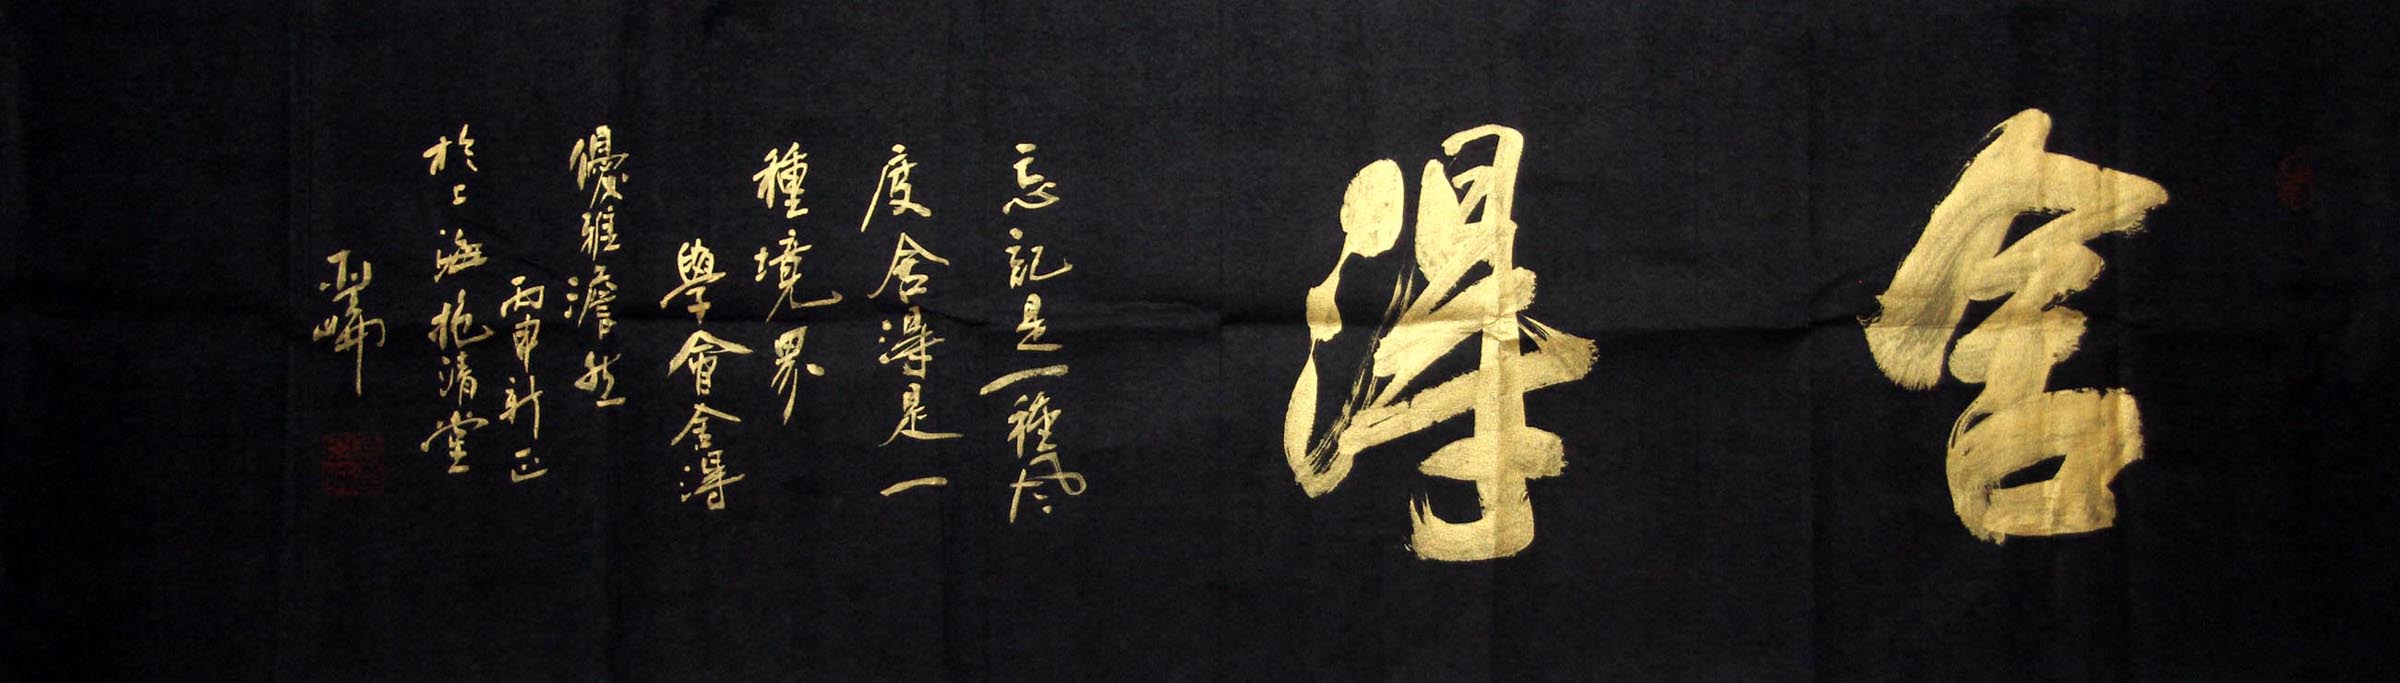 舍得
忘記是一種風
度舍得是一
種境界
學會舍得
優雅澹然
丙申新正
於上海抱清堂